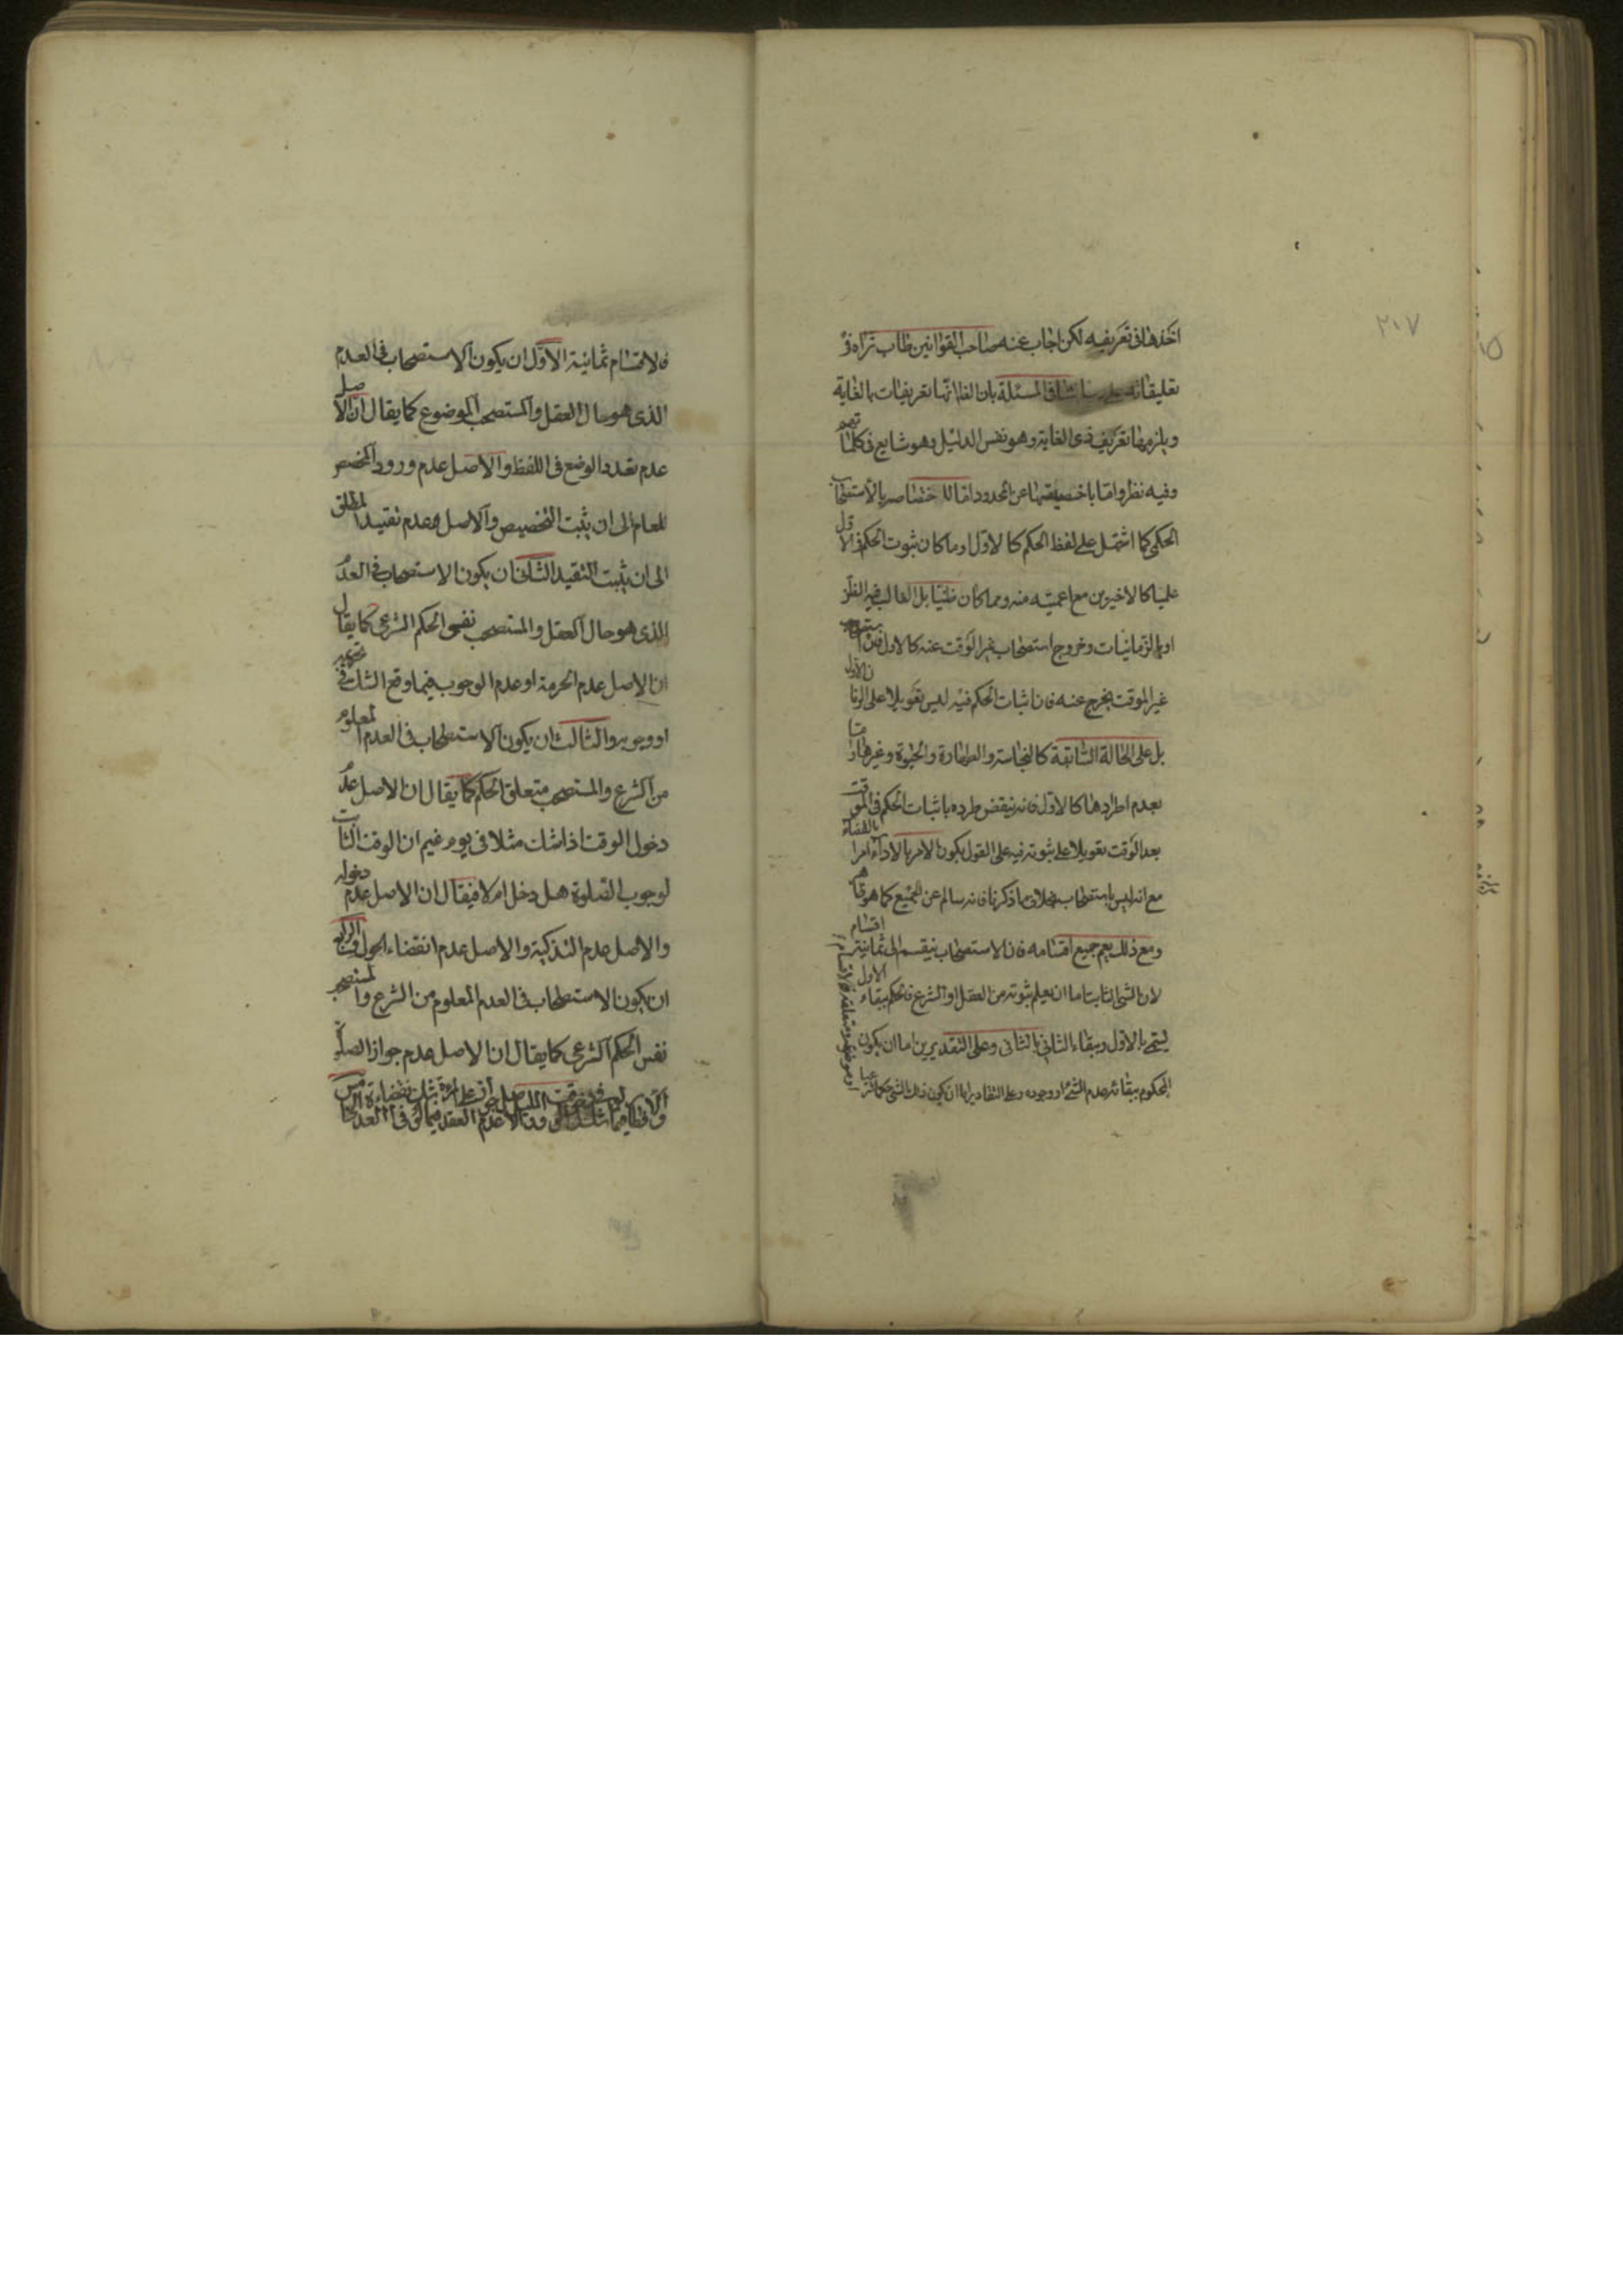 ٢٠٧
اخذها فى تعريفه لكن اجاب عنه صاحب القوانين طاب ثراه فى
تعليقاته على المسئلة بان الظ انها تعريفات بالغاية
ويلزمها تعريف ذى الغاية وهو نفس الدليل وهو شايع فى كلماتهم
وفيه نظر واما باخصيتها عن المحدود اما للاختصاصه بالاستصحاب
الحكمى كما اشتمل على لفظ الحكم كالاول او ما كان ثبوت الحكم فى الاول
علميا كالاخيرين مع اعميته منه ومما كان ظنيا بل الغالب فيه الظن
او بالزمانيات وخروج استصحاب غير الوقت عنه كالاول فان
غير الموقت يخرج عنه فان اثبات الحكم فيه ليس تعويلا على الزمان الاول
بل على الحالة السابقة كالنجاسة والطهارة والحيوة وغيرها
بعدم اطرادها كالاول فانه ينقض طرده باثبات الحكم فى الموقت
بعد الوقت تعويلا على ثبوته فيه على القول بكون الامر بالاداء امرا بالقضاء
مع انه ليس باستصحاب بخلاف ما ذكرنا فانه سالم عن الجميع كما هو ظاهر
ومع ذلك يعم جميع اقسامه فان الاستصحاب ينقسم الى ثمانية اقسام
لان الشئ الثابت اما ان يعلم ثبوته من العقل او الشرع فالحكم ببقاء الاول
يسمى بالاول وببقاء الثانى بالثانى وعلى التقديرين اما ان يكون
المحكوم ببقائه عدم الشئ او وجوده وعلى التقادير اما ان يكون ذلك الشئ حكما شرعيا
او موضوعه ومتعلقه
فالاقسام ثمانية الاول ان يكون الاستصحاب فى العدم
الذى هو حال العقل والمستصحب الموضوع كما يقال ان الاصل
عدم تعدد الوضع فى اللفظ والاصل عدم ورود المخصص
للعام الى ان يثبت التخصيص والاصل عدم تقييد المطلق
الى ان يثبت التقييد الثانى ان يكون الاستصحاب فى العدم
الذى هو حال العقل والمستصحب نفس الحكم الشرعى كما يقال
ان الاصل عدم الحرمة او عدم الوجوب فيما وقع الشك فى تحريمه
او وجوبه والثالث ان يكون الاستصحاب فى العدم المعلوم
من الشرع والمستصحب متعلق الحكم كما يقال ان الاصل عدم
دخول الوقت اذا شك مثلا فى يوم غيم ان الوقت الثابت
لوجوب الصلوة هل دخل ام لا فيقال ان الاصل عدم دخوله
والاصل عدم التذكية والاصل عدم انقضاء الحول والرابع
ان يكون الاستصحاب فى العدم المعلوم من الشرع والمستصحب
نفس الحكم الشرعى كما يقال ان الاصل عدم جواز الصلوة